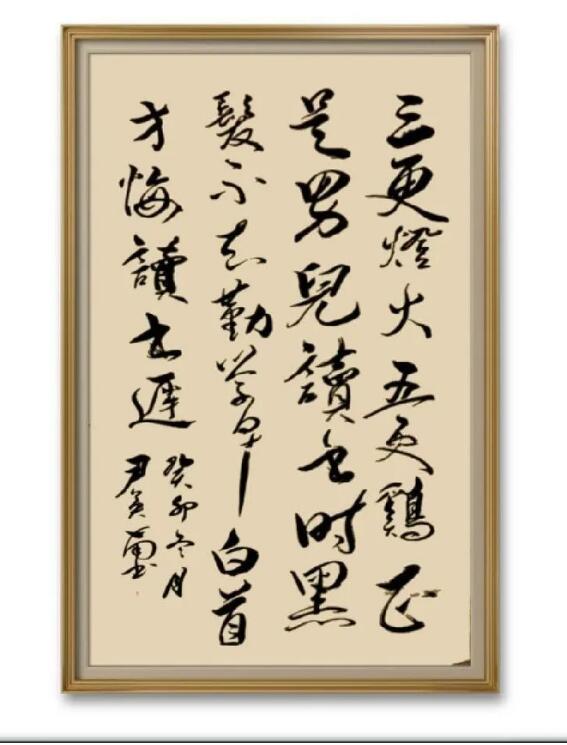 三更燈火五更鷄正
是男兒讀書时黑
髮不知勤學早白首
才悔讀書遲
癸卯冬月
尹